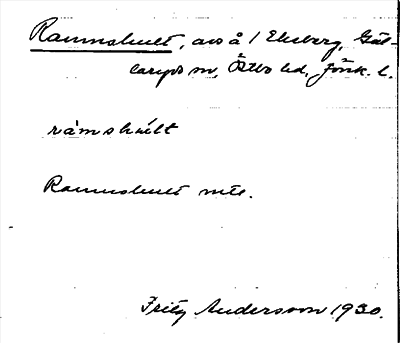 Ramnshult, avs å 1 Ekeberg, Gäl-
laryds sn, Östbo hd, Jönk. l.
ràmshult
Ramnshult mtl.
Fritz Andersson 1930.